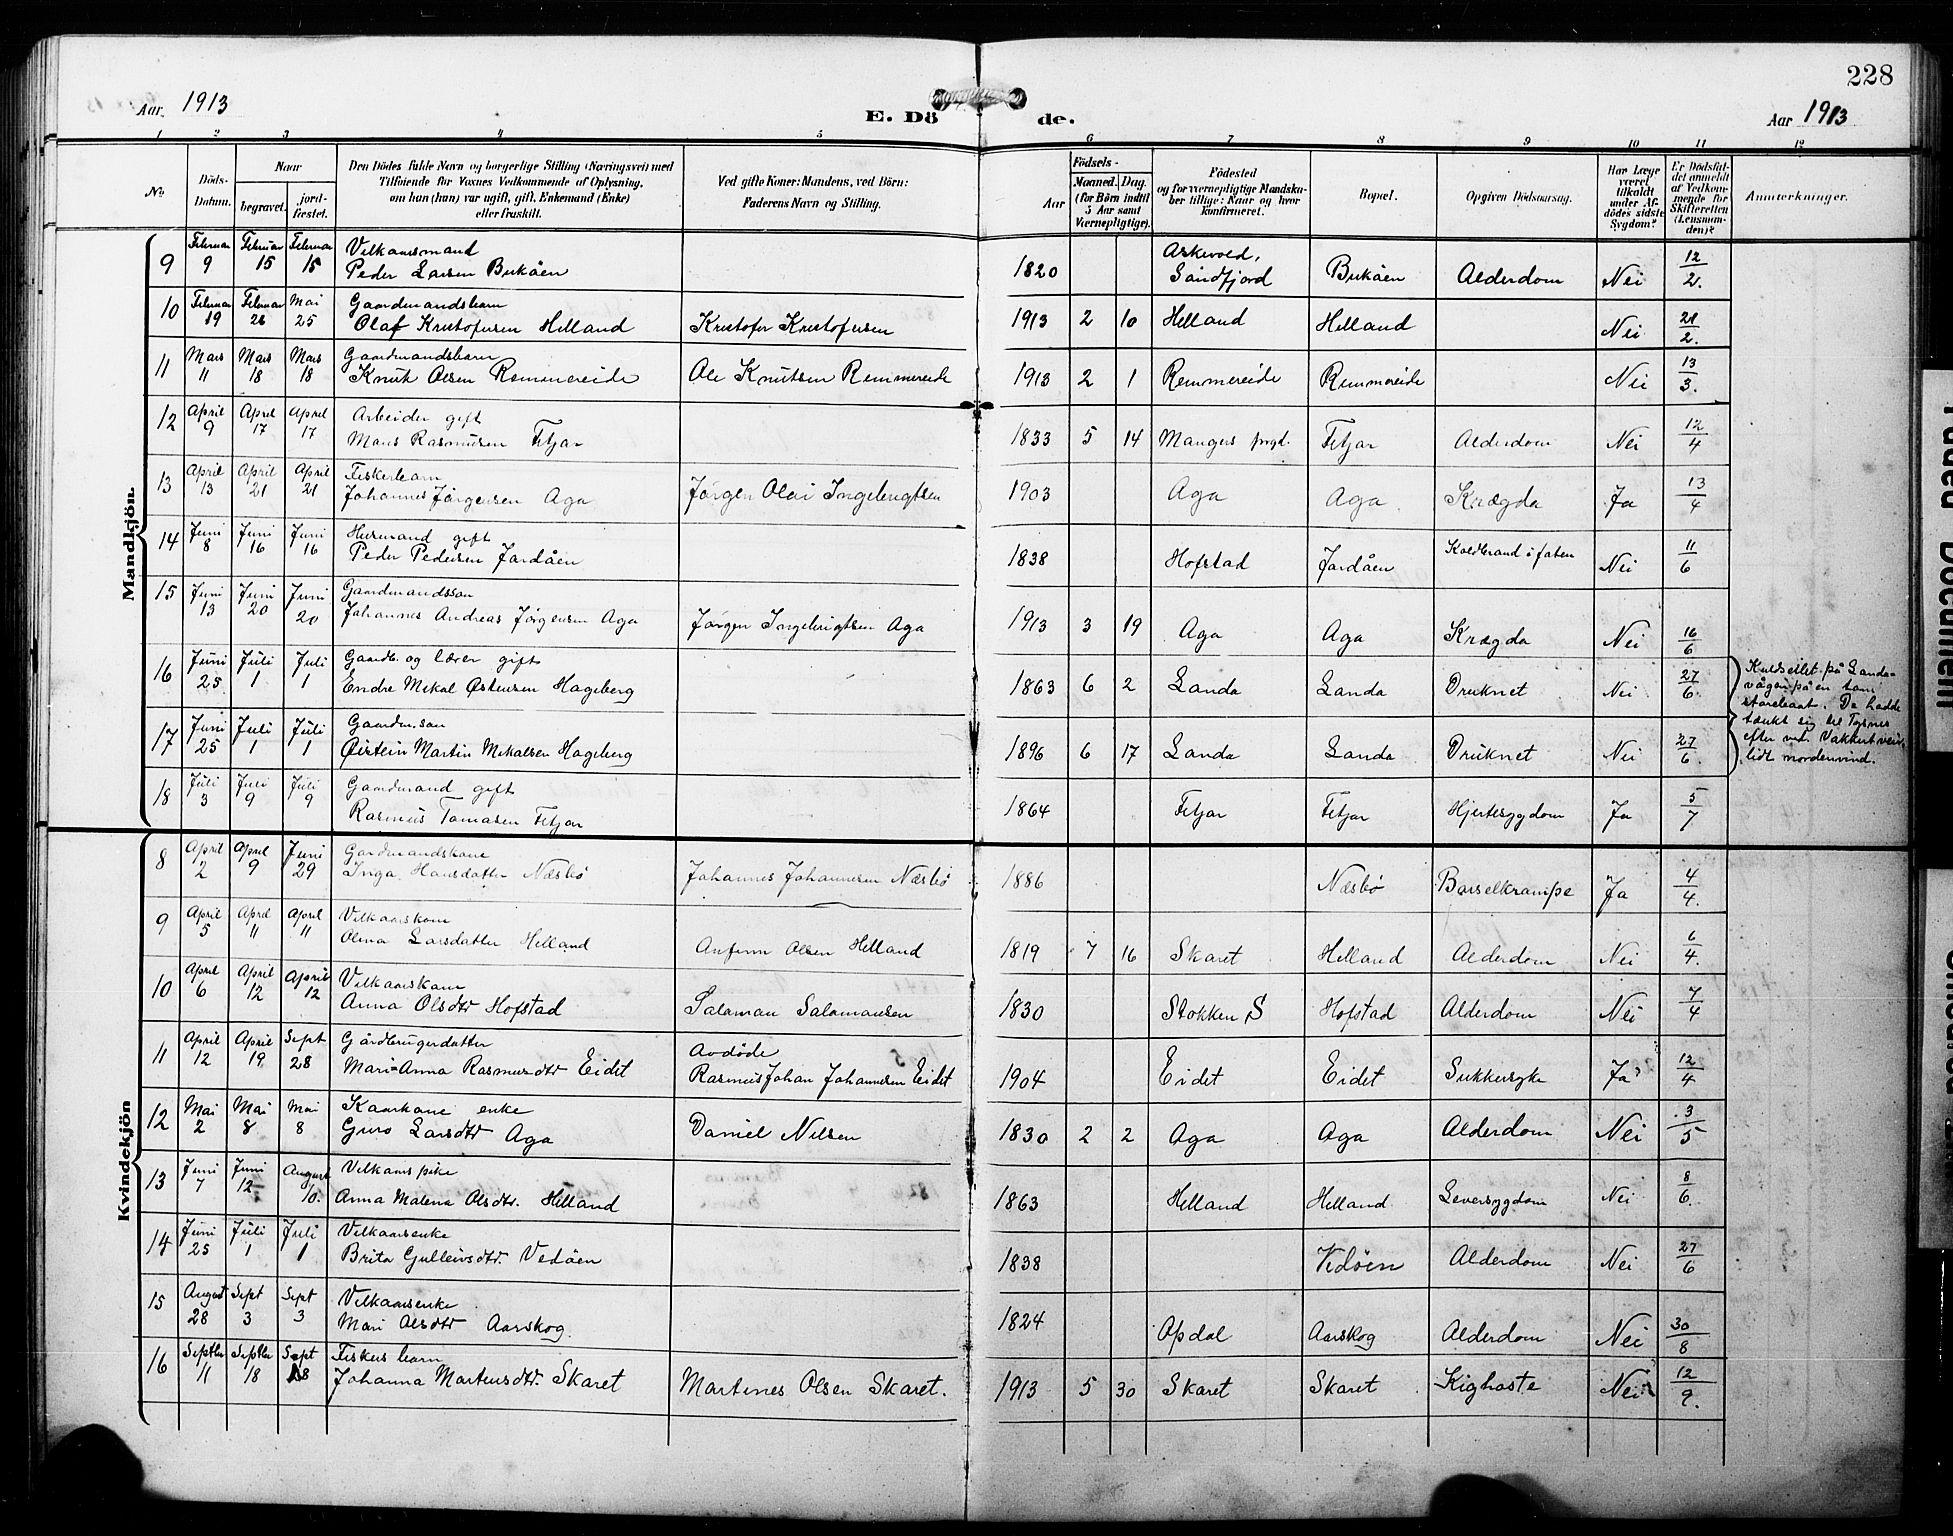 228
Aar 1913
E. Dö de.
Aar 1913
1 2 3 4 5 6 7 8 9 10 11 12
No. Döds-Datum. Naar begravet. jordfæstet. Den Dödes fulde Navn og borgerlige Stilling (Næringsvei) med Tilföiende for Voxnes Vedkommende af Oplysning, om han (hun) var ugift, gift, Enkemand (Enke) eller fraskilt. Ved gifte Koner: Mandens, ved Börn: Faderens Navn og Stilling. Födsels- Aar Maaned. Dag. (for Börn indtil 5 Aar samt Værnepligtige). Födested og for værnepligtige Mandskaber tillige: Naar og hvor konfirmeret. Bopæl. Opgiven Dödsaarsag. Har Læge været tilkaldt under Afdödes sidste Sygdom? Er Dödsfaldet anmeldt af Vedkommende for Skifteretten (Lensmanden)? Anmærkninger.
Mandkjön.
9 Februar 9 Februar 15 Februar 15 Vilkaarsmand Peder Larsen Bukåen 1820 Askevold, Søndfjord Bukåen Alderdom Nei 12/2.
10 Februar 19 Februar 26 Mai 25 Gaardmandsbarn Olaf Kristofersen Helland Kristofer Kristofersen 1913 2 10 Helland Helland Nei 21/2.
11 Mars 11 Mars 18 Mars 18 Gaardmandsbarn Knut Olsen Remmereide Ole Knutsen Remmereide 1913 2 1 Remmereide Remmereide Nei 13/3.
12 April 9 April 17 April 17 Arbeider gift Mons Rasmusen Fitjar 1833 5 14 Mangers prgd. Fitjar Alderdom Nei 12/4
13 April 13 April 21 April 21 Fiskerbarn Johannes Jørgensen Aga Jørgen Olai Ingebrigtsen 1903 Aga Aga Krægda Ja 13/4
14 Juni 8 Juni 16 Juni 16 Husmand gift Peder Pedersen Jordåen 1838 Hofstad Jordåen Koldbrand i foten Nei 11/6
15 Juni 13 Juni 20 Juni 20 Gaardmandsson Johannes Andreas Jørgensen Aga Jørgen Ingebrigtsen Aga 1913 3 19 Aga Aga Krægda Nei 16/6
16 Juni 25 Juli 1 Juli 1 Gaardb. og lærer gift Endre Mikal Østensen Hageberg 1863 6 2 Landa Landa Druknet Nei 27/6. Kulseilet på Landavågen på en tom storebaat. De hadde tænkt sig til Tysnes efter ved. Vakkert veir, lidt nordenvind.
17 Juni 25 Juli 1 Juli 1 Gaardm. son Øistein Martin Mikalsen Hageberg 1896 6 17 Landa Landa Druknet Nei 27/6.
18 Juli 3 Juli 9 Juli 9 Gaardmand gift Rasmus Tomasen Fitjar 1864 Fitjar Fitjar Hjertesygdom Ja 5/7
Kvindekjön
8 April 2 April 9 Juni 29 Gardmandskone Inga Hansdatter Næsbø Johannes Johannesen Næsbø 1886 Næsbø Barselkrampe Ja 4/4.
9 April 5 April 11 April 11 Vilkaarskone Olina Larsdatter Helland Anfinn Olsen Helland 1819 7 16 Skaret Helland Alderdom Nei 6/4.
10 April 6 April 12 April 12 Vilkaarskone Anna Olsdtr Hofstad Salamon Salamonsen 1830 Stokken, S Hofstad Alderdom Nei 7/4
11 April 12 April 19 Sept 28 Gårdbrugerdatter Mari-Anna Rasmusdtr Eidet Avdøde Rasmus Johan Johannesen Eidet 1904 Eidet Eidet Sukkersyke Ja 12/4
12 Mai 2 Mai 8 Mai 8 Kaarkone enke Guro Larsdtr Aga Daniel Nilsen 1830 2 2 Aga Aga Alderdom Nei 3/5
13 Juni 7 Juni 12 August 10 Vilkaarspike Anna Malena Olsdtr. Helland 1863 Helland Helland Leversygdom Nei 8/6.
14 Juni 25 Juli 1 Juli 1 Vilkaarsenke Brita Gulleivsdtr. Vedøen 1838 Vedøen Alderdom Nei 27/6
15 August 28 Sept 3 Sept 3 Vilkaarsenke Mari Olsdtr Aarskog. 1824 Opdal Aarskog Alderdom Nei 30/8
16 Septbr 11 Septbr 18 Sept 18 Fiskers barn Johanna Martensdtr. Skaret Martines Olsen Skaret. 1913 5 30 Skaret Skaret Kighoste Nei 12/9.